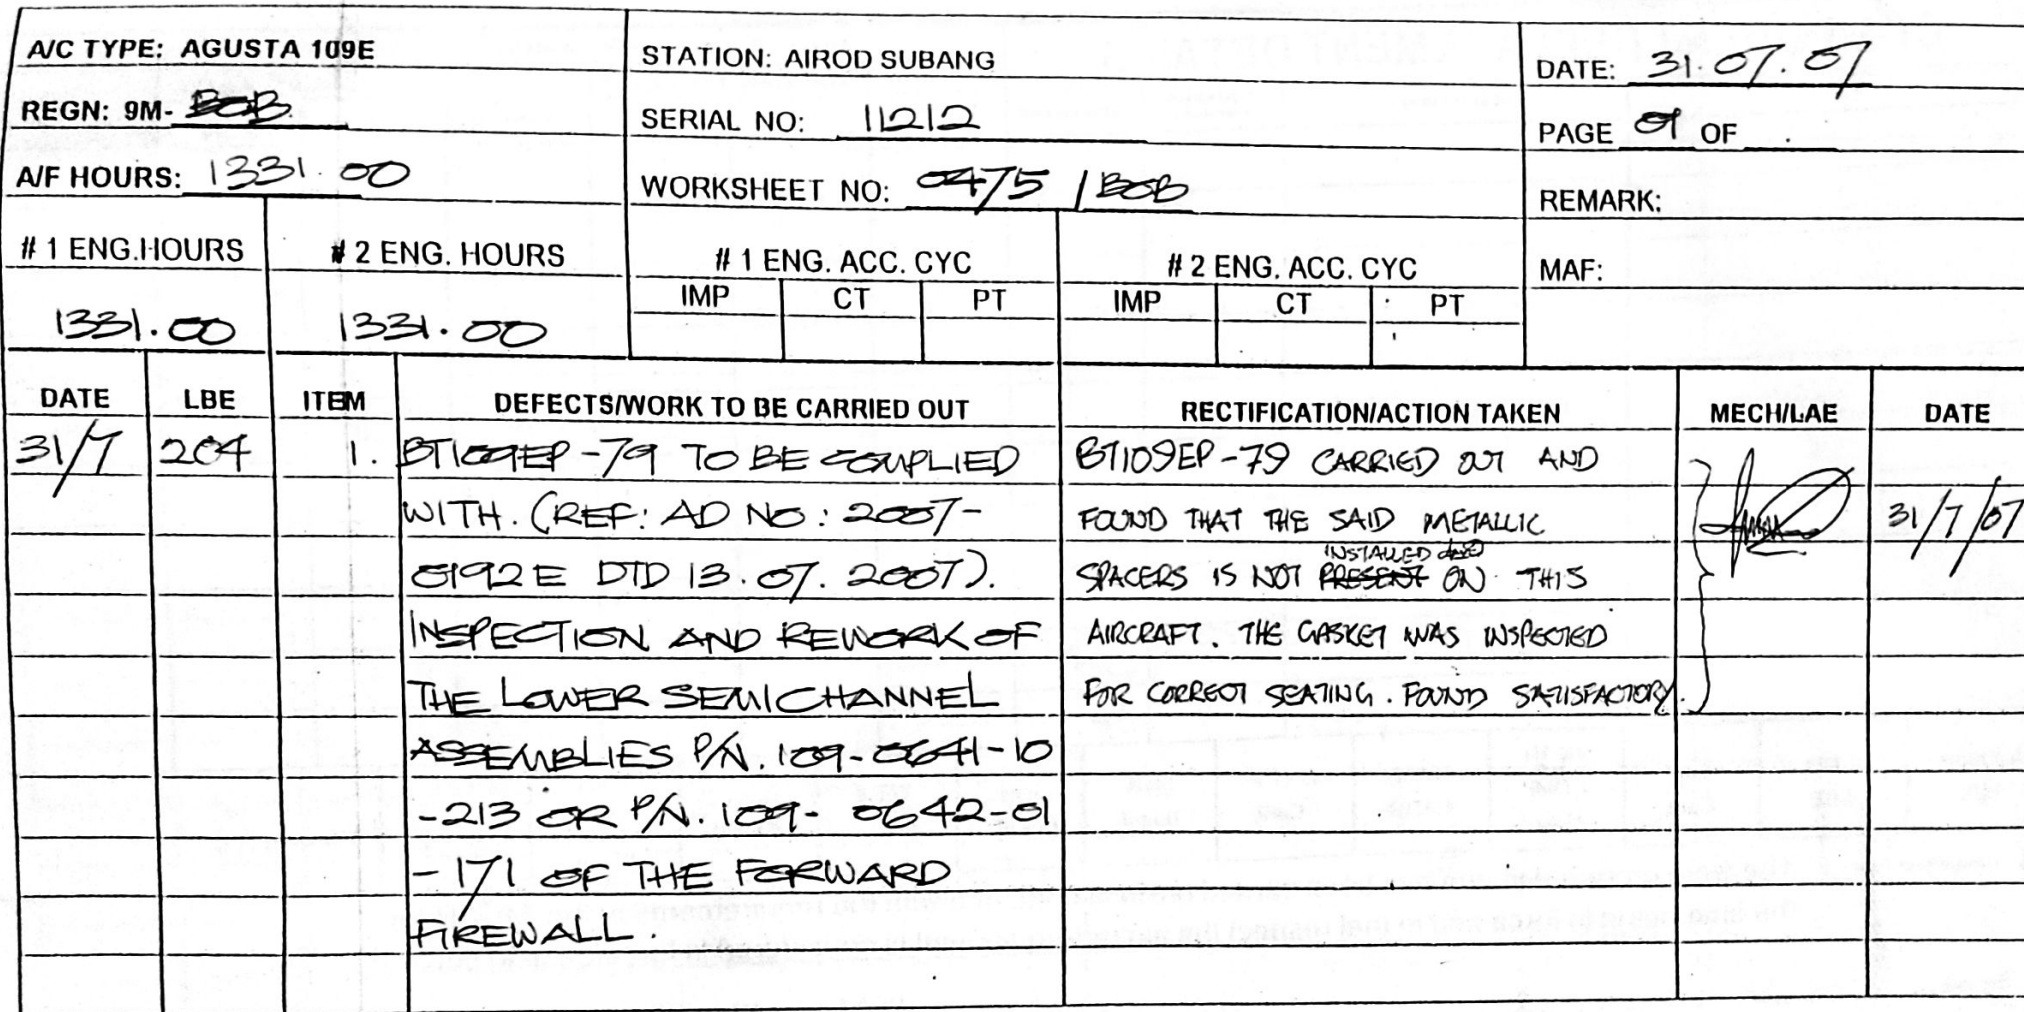 A/C TYPE: AGUSTA 109E
STATION: AIROD SUBANG
DATE: 31.07.07
REGN: 9M- BOB
SERIAL NO: 11212
PAGE 01 OF .
A/F HOURS: 1331.00
WORKSHEET NO: 0475 / BOB
REMARK:
# 1 ENG.HOURS
# 2 ENG. HOURS
# 1 ENG. ACC. CYC
# 2 ENG. ACC. CYC
MAF:
IMP CT PT
IMP CT PT
1331.00
1331.00
DATE LBE ITEM DEFECTS/WORK TO BE CARRIED OUT RECTIFICATION/ACTION TAKEN MECH/LAE DATE
31/7 204 1. BT109EP-79 TO BE COMPLIED
WITH. (REF: AD NO: 2007-
0192E DTD 13.07.2007).
INSPECTION AND REWORK OF
THE LOWER SEMICHANNEL
ASSEMBLIES P/N. 109-0641-10
-213 OR P/N. 109-0642-01
-171 OF THE FORWARD
FIREWALL.
BT109EP-79 CARRIED OUT AND
FOUND THAT THE SAID METALLIC
INSTALLED
SPACERS IS NOT PRESENT ON THIS
AIRCRAFT. THE GASKET WAS INSPECTED
FOR CORRECT SEATING. FOUND SATISFACTORY.
31/7/07